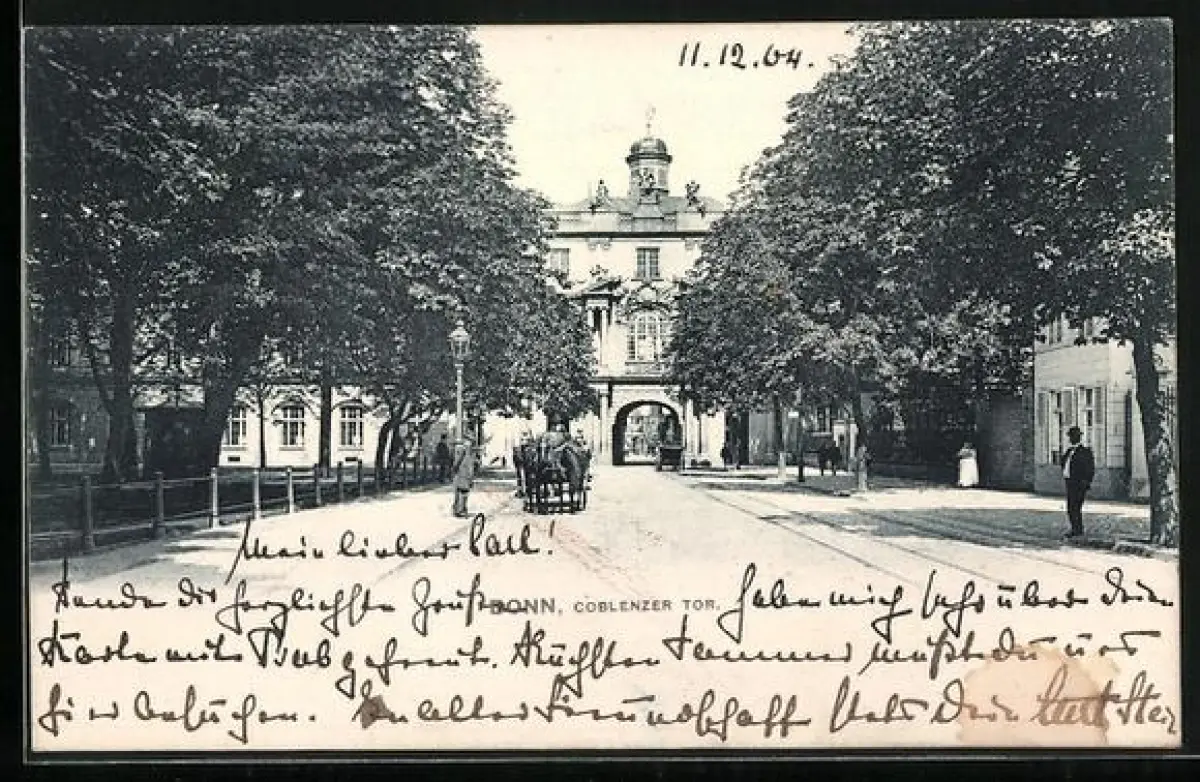 11.12.04.
Mein lieber Carl!
Sende dir herzlichste Grüße
BONN, COBLENZER TOR.
Habe mich sehr über deine
Karte mit Bild gefreut. Nächsten Sommer mußt du uns
hier besuchen. In alter Freundschaft stets dein